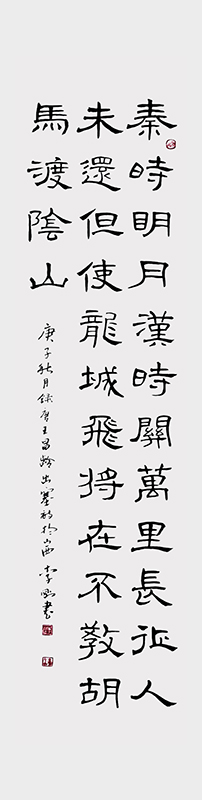 秦時明月漢時關萬里長征人
未還但使龍城飛將在不敎胡
馬渡陰山
庚子秋月錄唐王昌齡出塞詩於山西李書